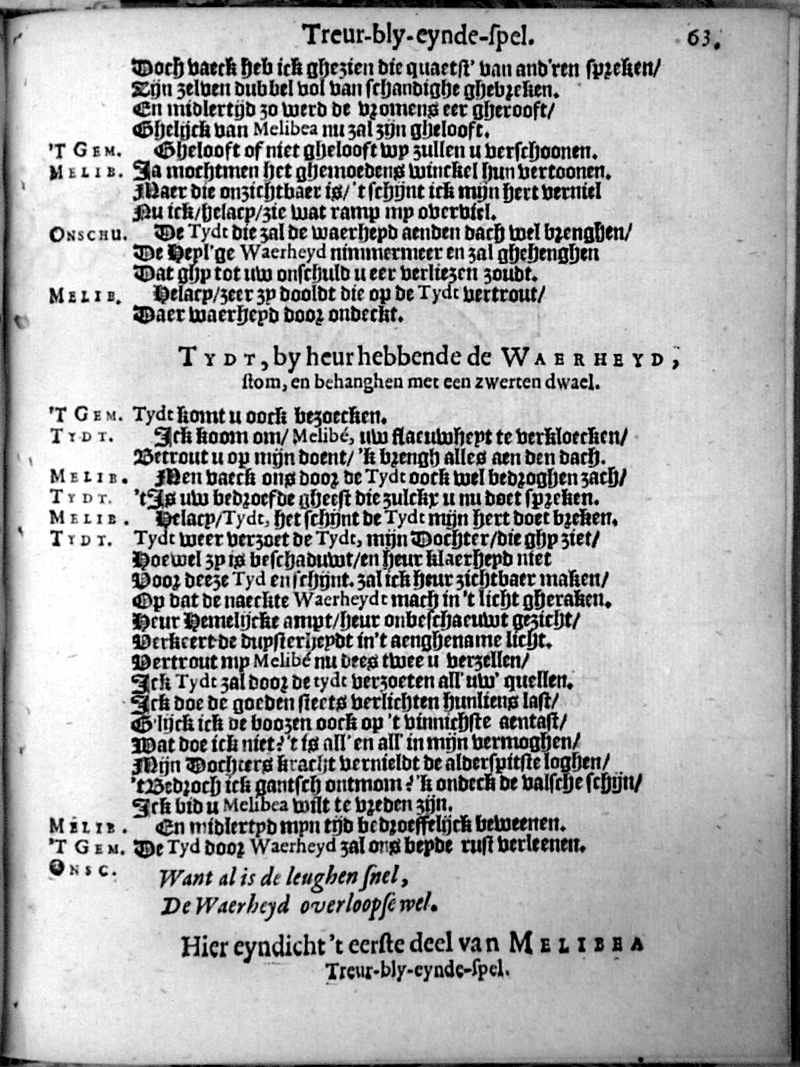 Treur-bly-eynde-spel. 63.
Doch vaeck heb ick ghezien die quaetst' van and'ren spreken/
Zijn zelven dubbel vol van schandighe ghebreken.
En midlertijd zo werd de vromens eer gherooft/
Ghelijck van Melibea nu zal zijn ghelooft.
'T GEM. Ghelooft of niet ghelooft wy zullen u verschoonen.
MELIB. Ja mochtmen het ghemoedens winckel hun vertoonen.
Maer die onzichtbaer is/ 't schijnt ick mijn hert verniel
Nu ick/helacy/zie wat ramp my overviel.
ONSCHU. De Tydt die zal de waerheyd aenden dach wel brenghen/
De Heyl'ge Waerheyd nimmermeer en zal ghehenghen
Dat ghy tot uw onschuld u eer verliezen zoudt.
MELIB. Helacy/zeer zy dooldt die op de Tydt vertrout/
Daer waerheyd door ondeckt.
TYDT, by heur hebbende de WAERHEYD,
stom, en behanghen met een zwerten dwael.
'T GEM. Tydt komt u oock bezoecken.
TYDT. Ick koom om/ Melibé, uw flaeuwheyt te verkloecken/
Betrout u op mijn doent/ 'k brengh alles aen den dach.
MELIB. Men vaeck ons door de Tydt oock wel bedroghen zach/
TYDT. 't Is uw bedroefde gheest die zulckx u nu doet spreken.
MELIB. Helacy/Tydt, het schijnt de Tydt mijn hert doet breken.
TYDT. Tydt weer verzoet de Tydt, mijn Dochter/die ghy ziet/
Hoewel zy is beschaduwt/en heur klaerheyd niet
Voor deeze Tyd en schijnt. zal ick heur zichtbaer maken/
Op dat de naeckte Waerheydt mach in 't licht gheraken.
Heur Hemelijcke ampt/heur onbeschaeuwt gezicht/
Verkeert de duysterheydt in't aenghename licht.
Vertrout my Melibé nu dees twee u verzellen/
Ick Tydt zal door de tydt verzoeten all' uw' quellen.
Ick doe de goeden steets verlichten hunliens last/
G'lijck ick de boozen oock op 't vinnichste aentast/
Wat doe ick niet? 't is all' en all' in mijn vermoghen/
Mijn Dochters kracht vernieldt de alderspitste loghen/
't Bedroch ick gantsch ontmom? 'k ondeck de valsche schijn/
Ick bid u Melibea wilt te vreden zijn.
MELIB. En midlertyd myn tijd bedroeffelijck beweenen.
'T GEM. De Tyd door Waerheyd zal ons beyde rust verleenen.
ONSC. Want al is de leughen snel,
De Waerheyd overloopse wel.
Hier eyndicht 't eerste deel van MELIBEA
Treur-bly-eynde-spel.